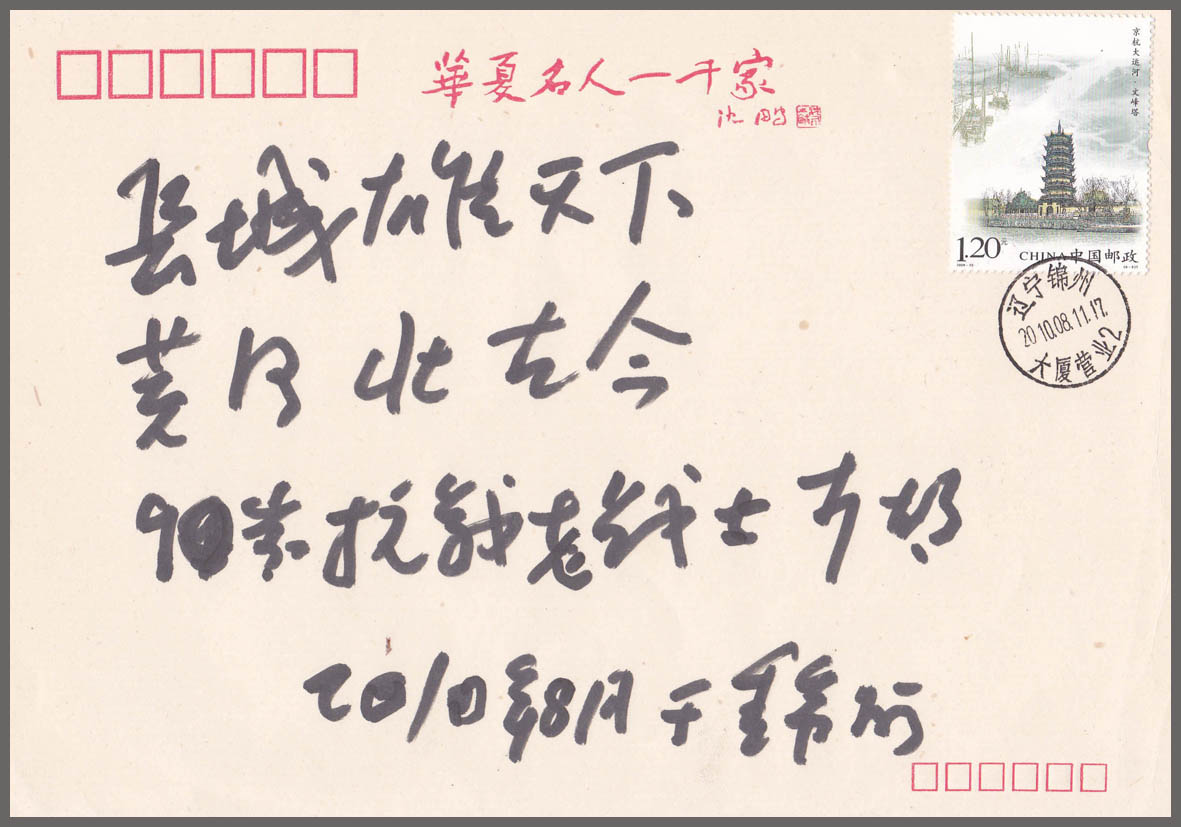 華夏名人一千家
沈鹏
京杭大运河·文峰塔
1.20元
CHINA 中国邮政
辽宁锦州
2010.08.11.17
大厦营业2
长城雄天下
黄河壮古今
90岁抗战老战士
2010年8月于锦州